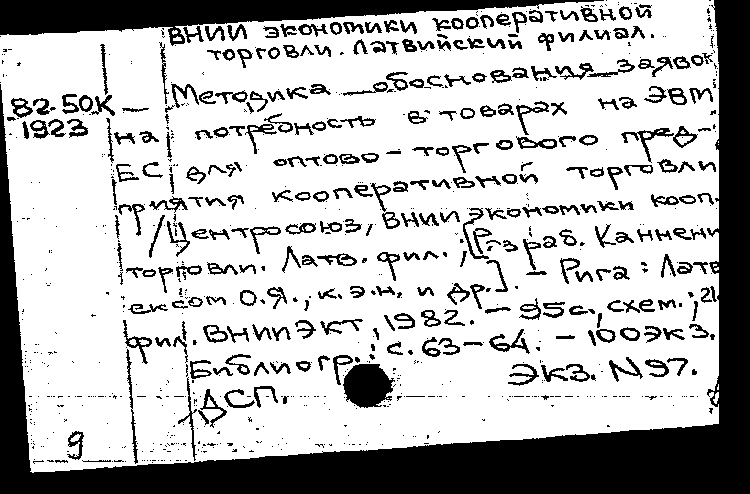 ВНИИ экономики кооперативной
торговли. Латвийский филиал.
82-50К
1923
Методика обоснования заявок
на потребность в товарах на ЭВМ
ЕС для оптово-торгового пред-
приятия кооперативной торговли
/Центросоюз, ВНИИ экономики кооп.
торговли. Латв. фил.; [Разраб. Каннени
ексом О.Я., к.э.н. и др.]. - Рига: Латв
фил. ВНИИЭКТ, 1982. - 95с., схем.; 21
Библиогр.: с. 63-64. - 100экз.
Экз. N97.
ДСП.
9